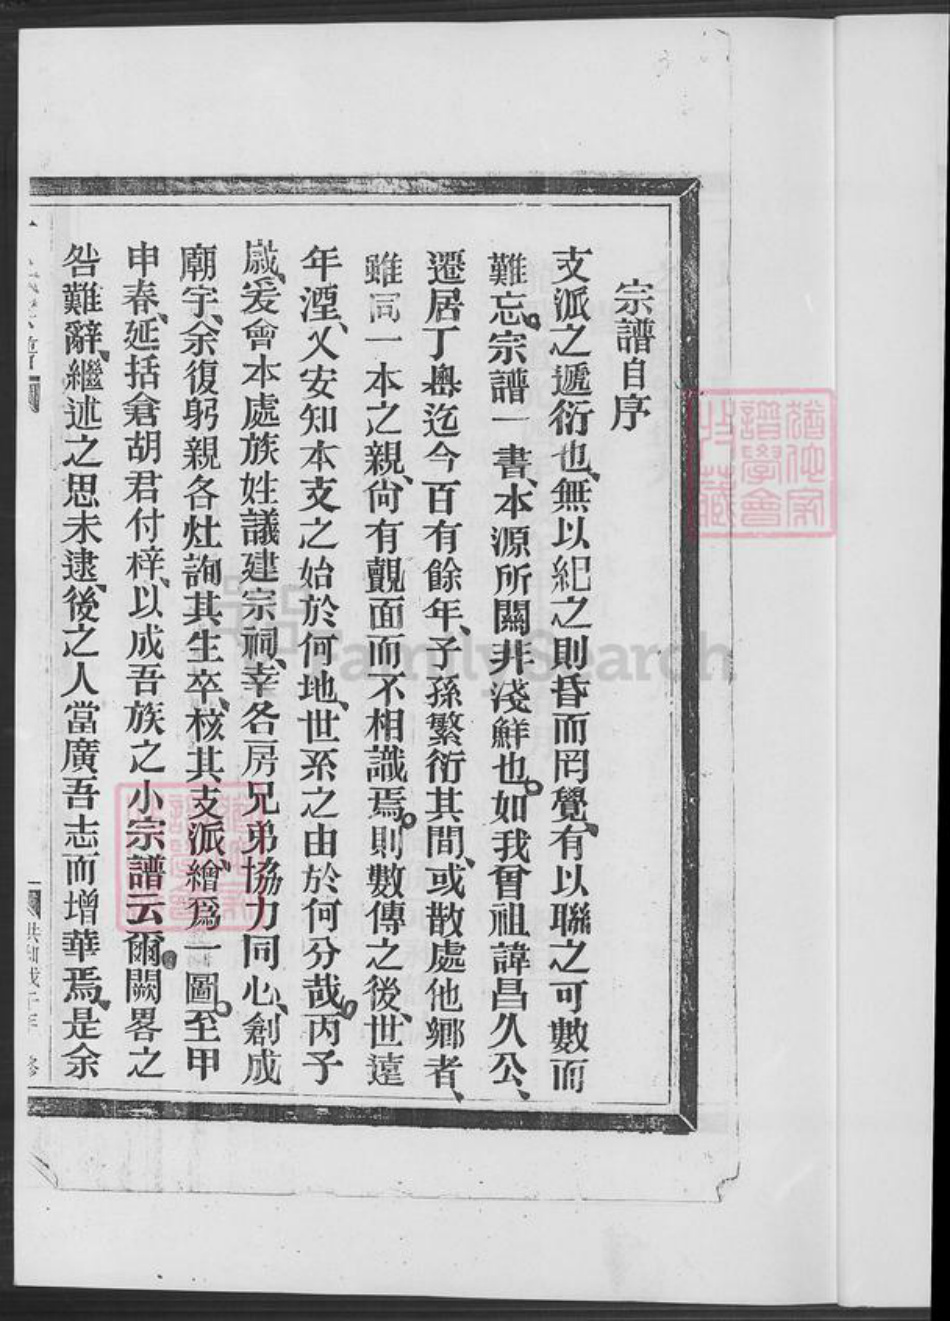 宗譜自序
支派之遞衍也、無以紀之則昏而罔覺、有以聯之可數而
難忘。宗譜一書、本源所關非淺鮮也。如我曾祖諱昌久公、
遷居丁嶴迄今百有餘年、子孫繁衍其間、或散處他鄉者、
雖同一本之親、尙有覿面而不相識焉。則數傳之後、世遠
年湮、又安知本支之始於何地、世系之由於何分哉。丙子
歲、爰會本處族姓議建宗祠、幸各房兄弟協力同心、創成
廟宇、余復躬親各灶詢其生卒、核其支派、繪爲一圖。至甲
申春、延括倉胡君付梓、以成吾族之小宗譜云爾。闕畧之
咎難辭、繼述之思未逮、後之人當廣吾志而增華焉、是余
猶他家
譜學會
收藏
FamilySearch